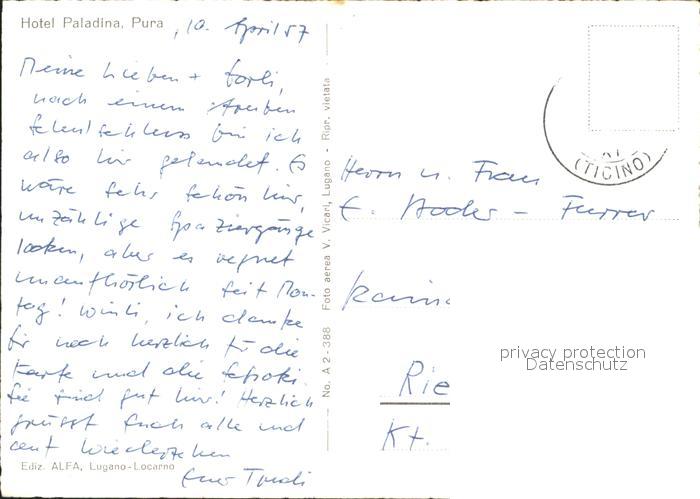 Hotel Paladina, Pura
, 10. April 57
Meine Lieben +
nach einem
Schulschluss bin ich
also hier gelandet. Es
wäre sehr schön hier,
unzählige Spaziergänge
locken, aber es regnet
unaufhörlich seit Mon-
tag! ich danke
Dir noch herzlich für die
Karte und die Schoki.
Sie sind gut hier! Herzlich
grüsst Euch alle und
auf Wiedersehen
Eure Trudi
Ediz. ALFA, Lugano-Locarno
No. A 2-388 Foto aerea V. Vicari, Lugano - Ripr. vietata
(TICINO)
Herrn u. Frau
E. - Furrer
Rie
Kt.
privacy protection
Datenschutz